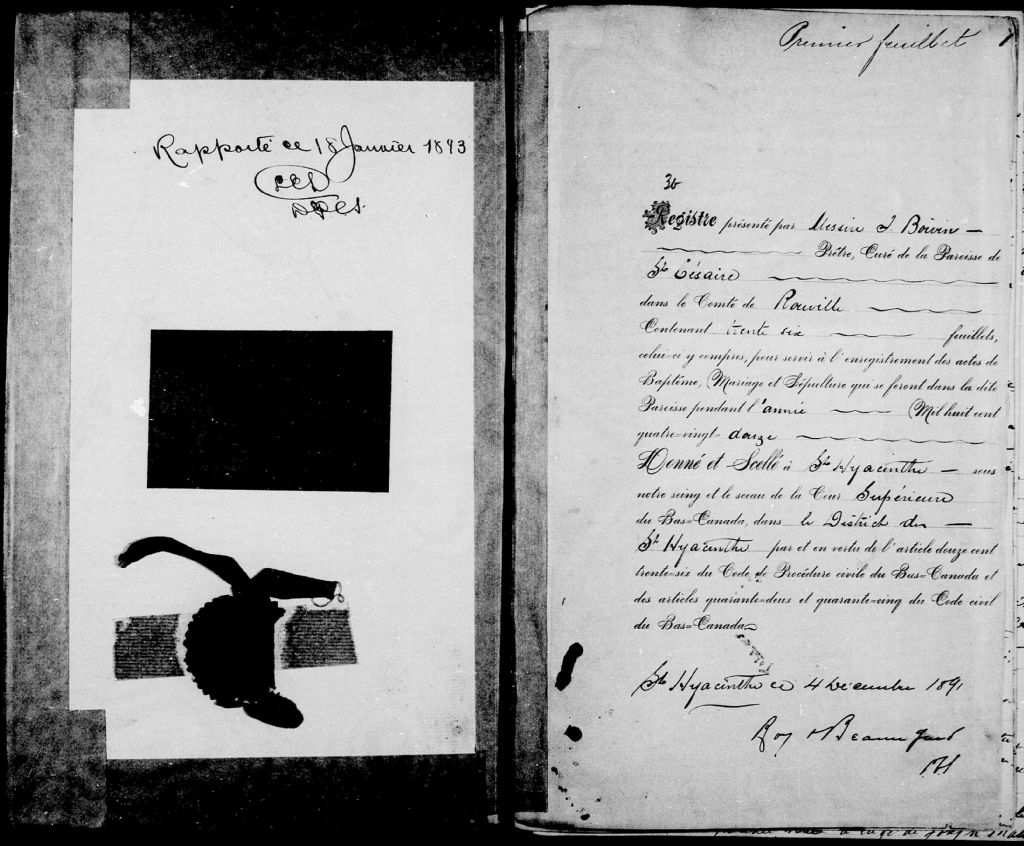 Rapporté ce 18 Janvier 1893
Premier feuillet 1
36
Registre présenté par Messire J. Boivin —
Prêtre, Curé de la Paroisse de
St Césaire
dans le Comté de Rouville
Contenant trente six feuillets,
celui-ci y compris, pour servir à l'enregistrement des actes de
Baptême, Mariage et Sépulture qui se feront dans la dite
Paroisse pendant l'année Mil huit cent
quatre-vingt-douze
Donné et Scellé à St Hyacinthe — sous
notre seing et le sceau de la Cour Supérieure
du Bas=Canada, dans le District de —
St Hyacinthe par et en vertu de l'article douze cent
trente=six du Code de Procédure civile du Bas=Canada et
des articles quarante=deux et quarante=cinq du Code civil
du Bas=Canada
St Hyacinthe ce 4 Décembre 1891
Roy & Beauregard